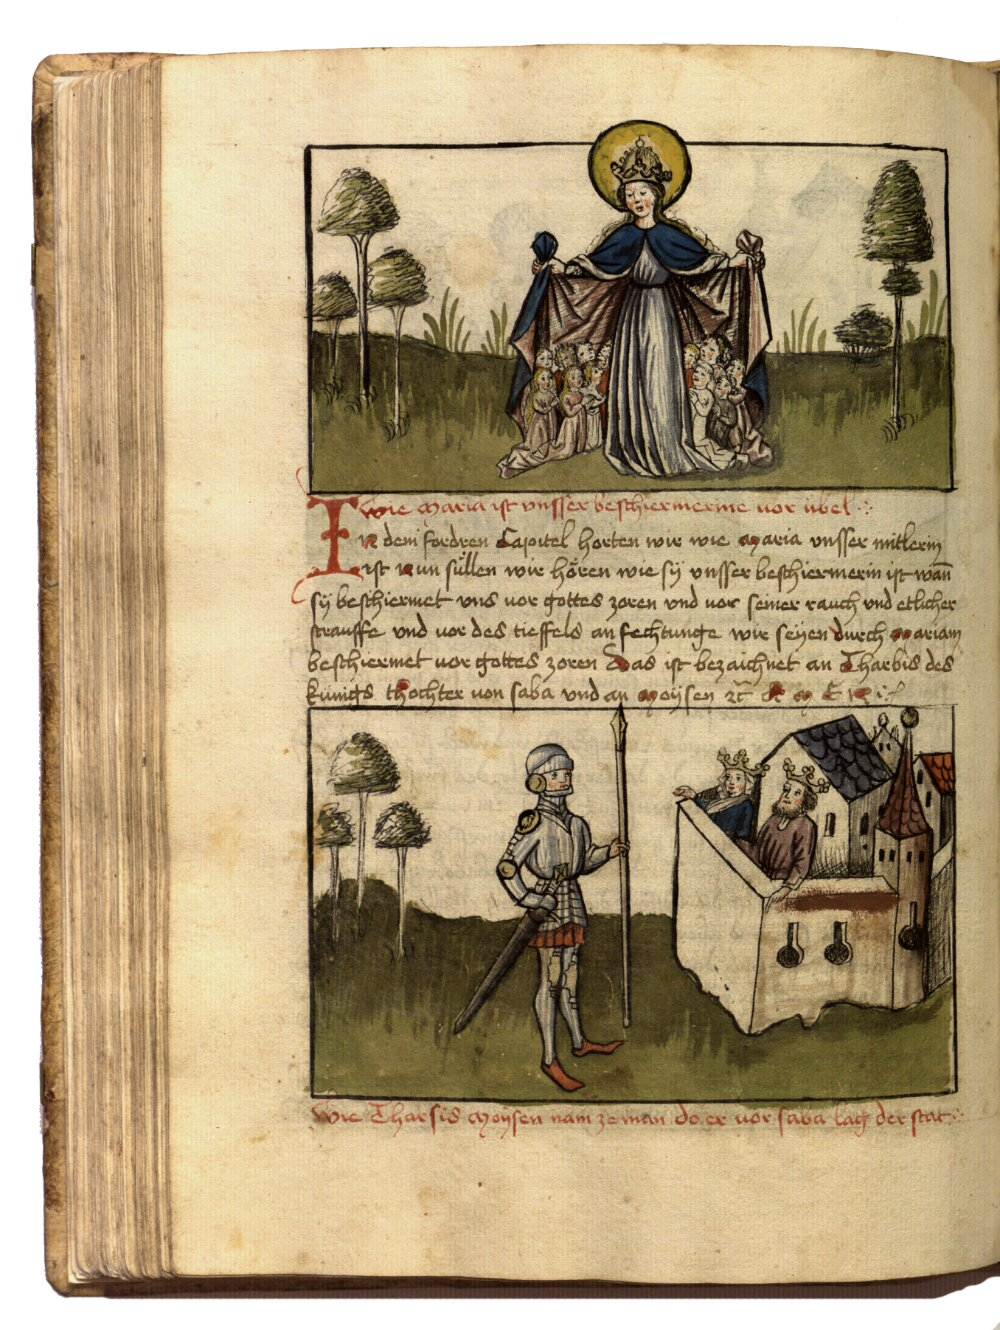 Wie Maria ist vnsser beschiermerine vor übel
In dem fordren Capitel horten wir wie Maria vnsser mitlerin
ist Nun süllen wir hören wie sÿ vnsser beschiermerin ist wañ
sÿ beschiermet vns vor gottes zoren vnd vor seiner rauch vnd etlicher
strauffe vnd vor des tieffels anfechtunge wir seÿen durch Mariam
beschiermet vor gottes zoren Das ist bezaichnet an Tharbis des
künigs thochter von saba vnd an Moÿsen
Wie Tharsis Moÿsen nam ze man do er vor saba lag der stat